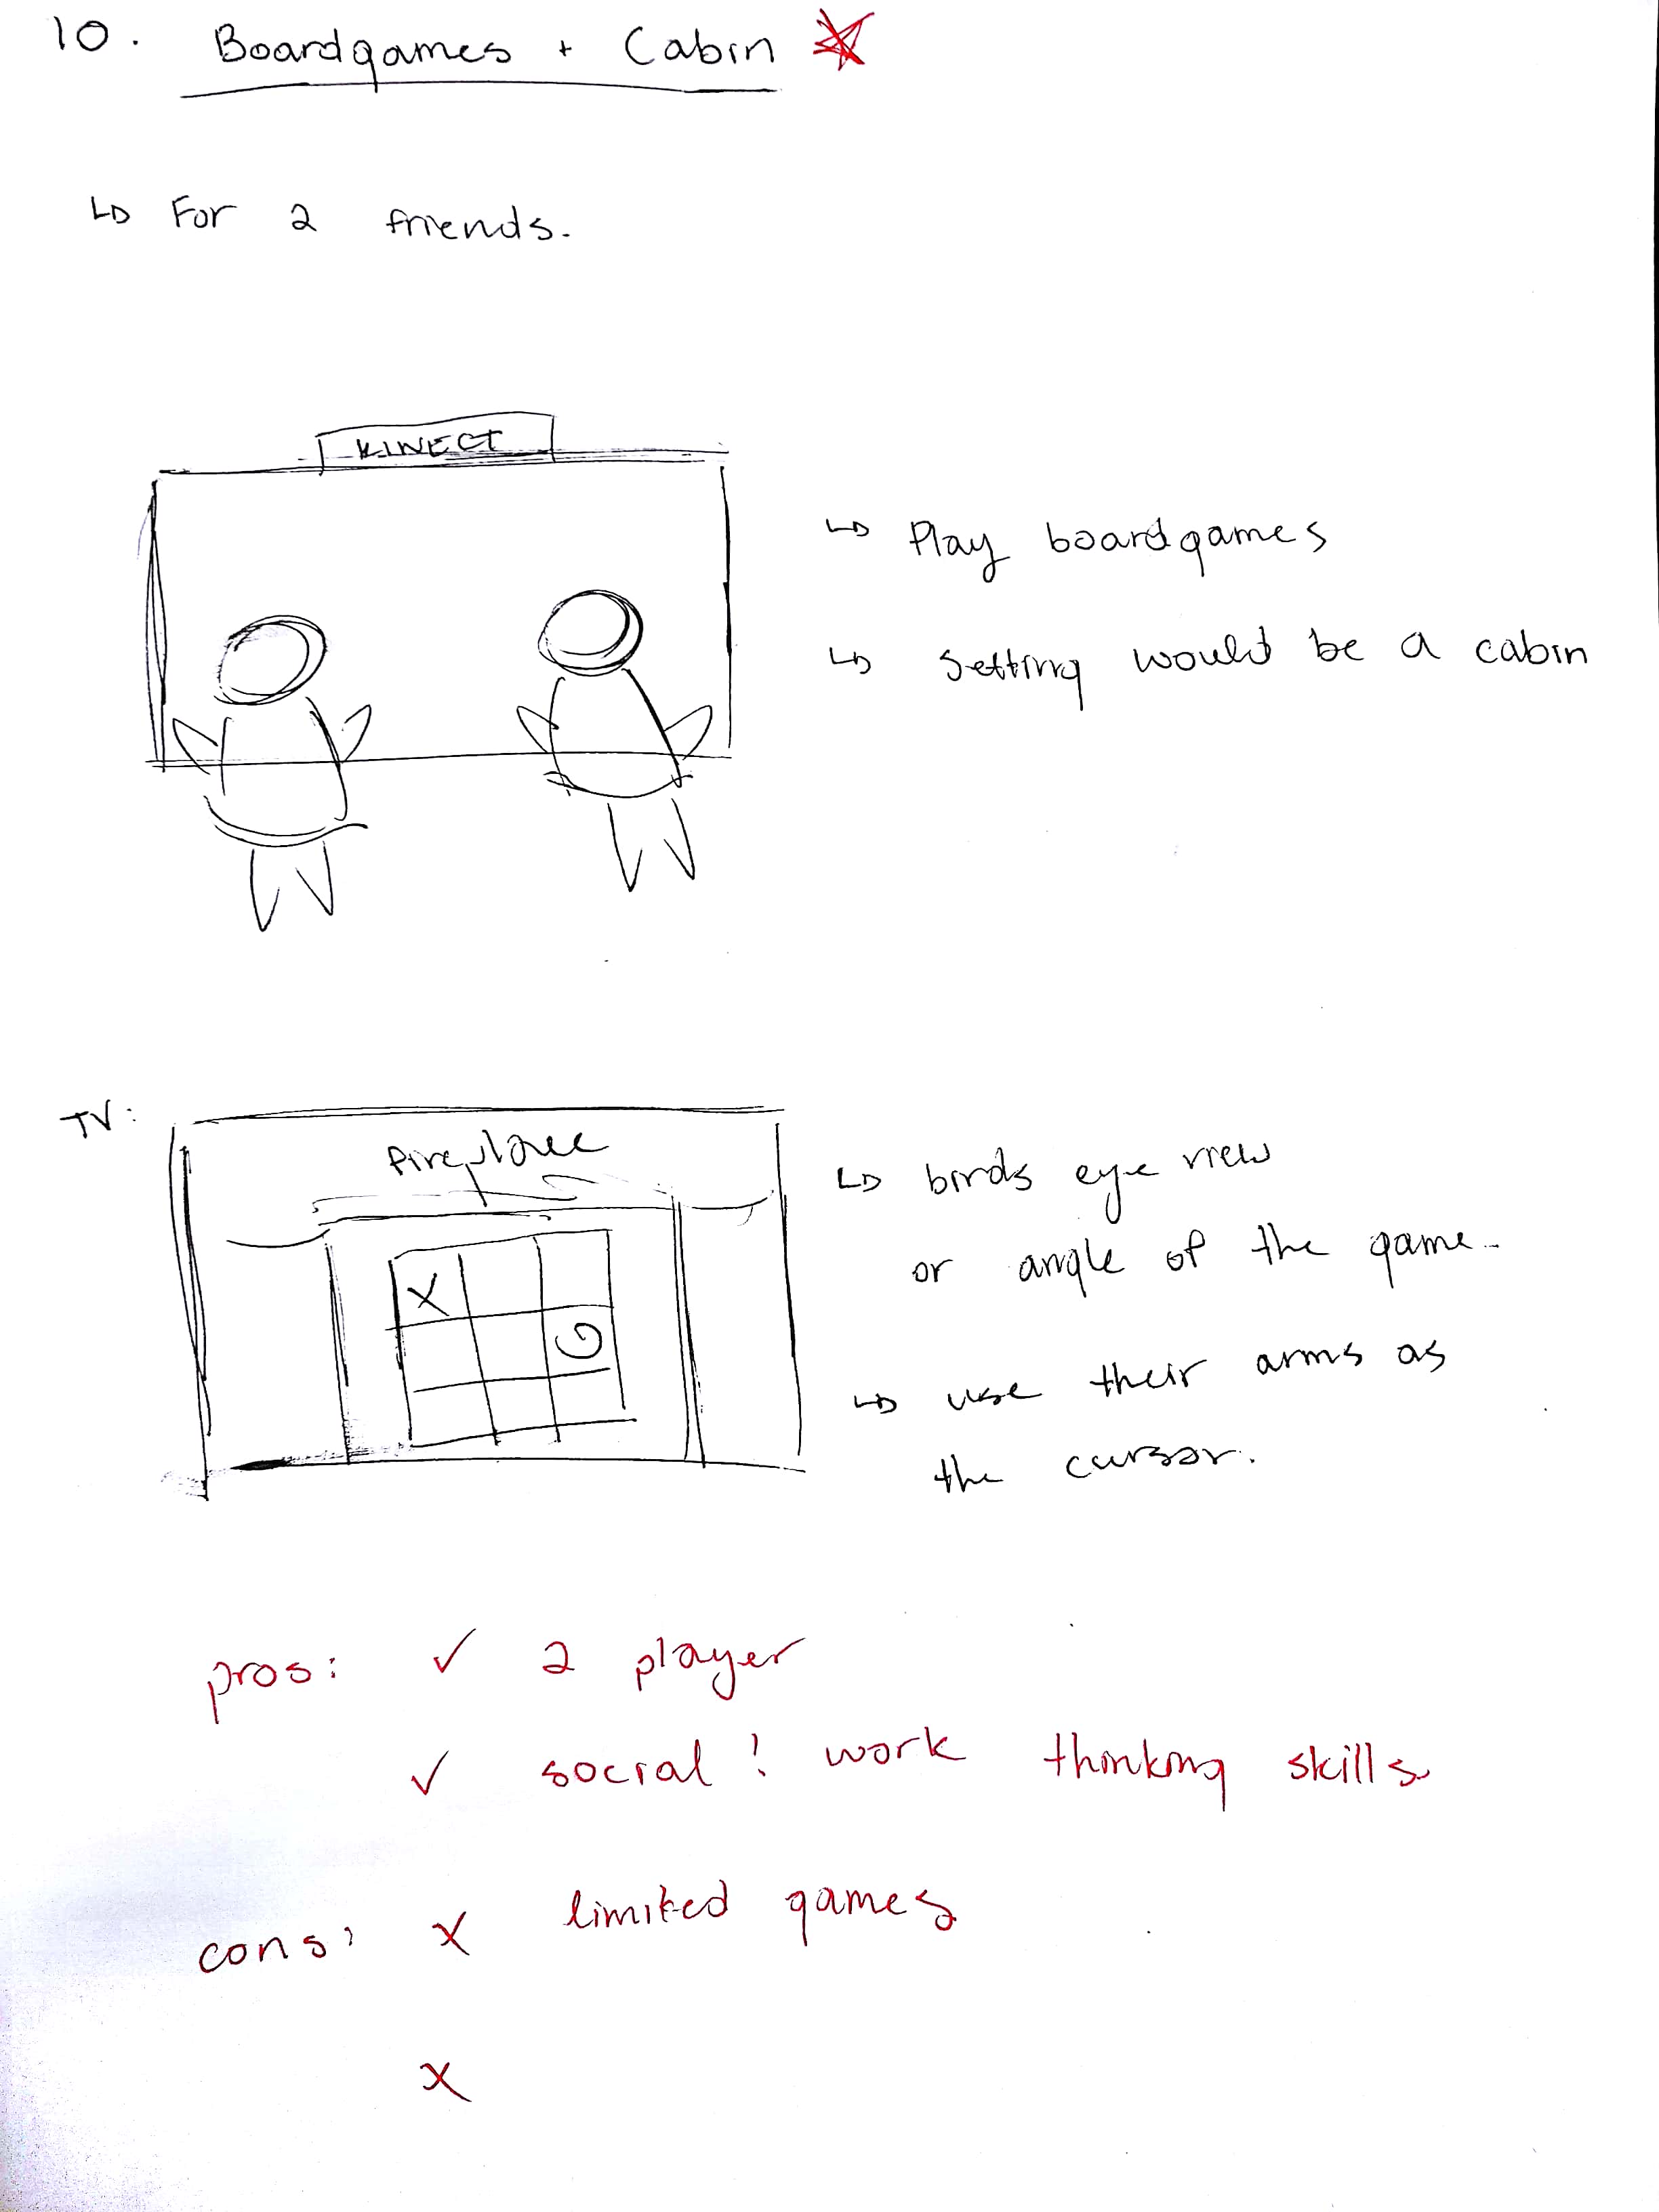 10. Boardgames + Cabin
↳ For 2 friends.
KINECT
↳ Play boardgames
↳ Setting would be a cabin
TV:
fireplace
X
O
↳ birds eye view
or angle of the game.
↳ use their arms as
the cursor.
pros: ✓ 2 player
✓ social! work thinking skills
cons: x limited games
x